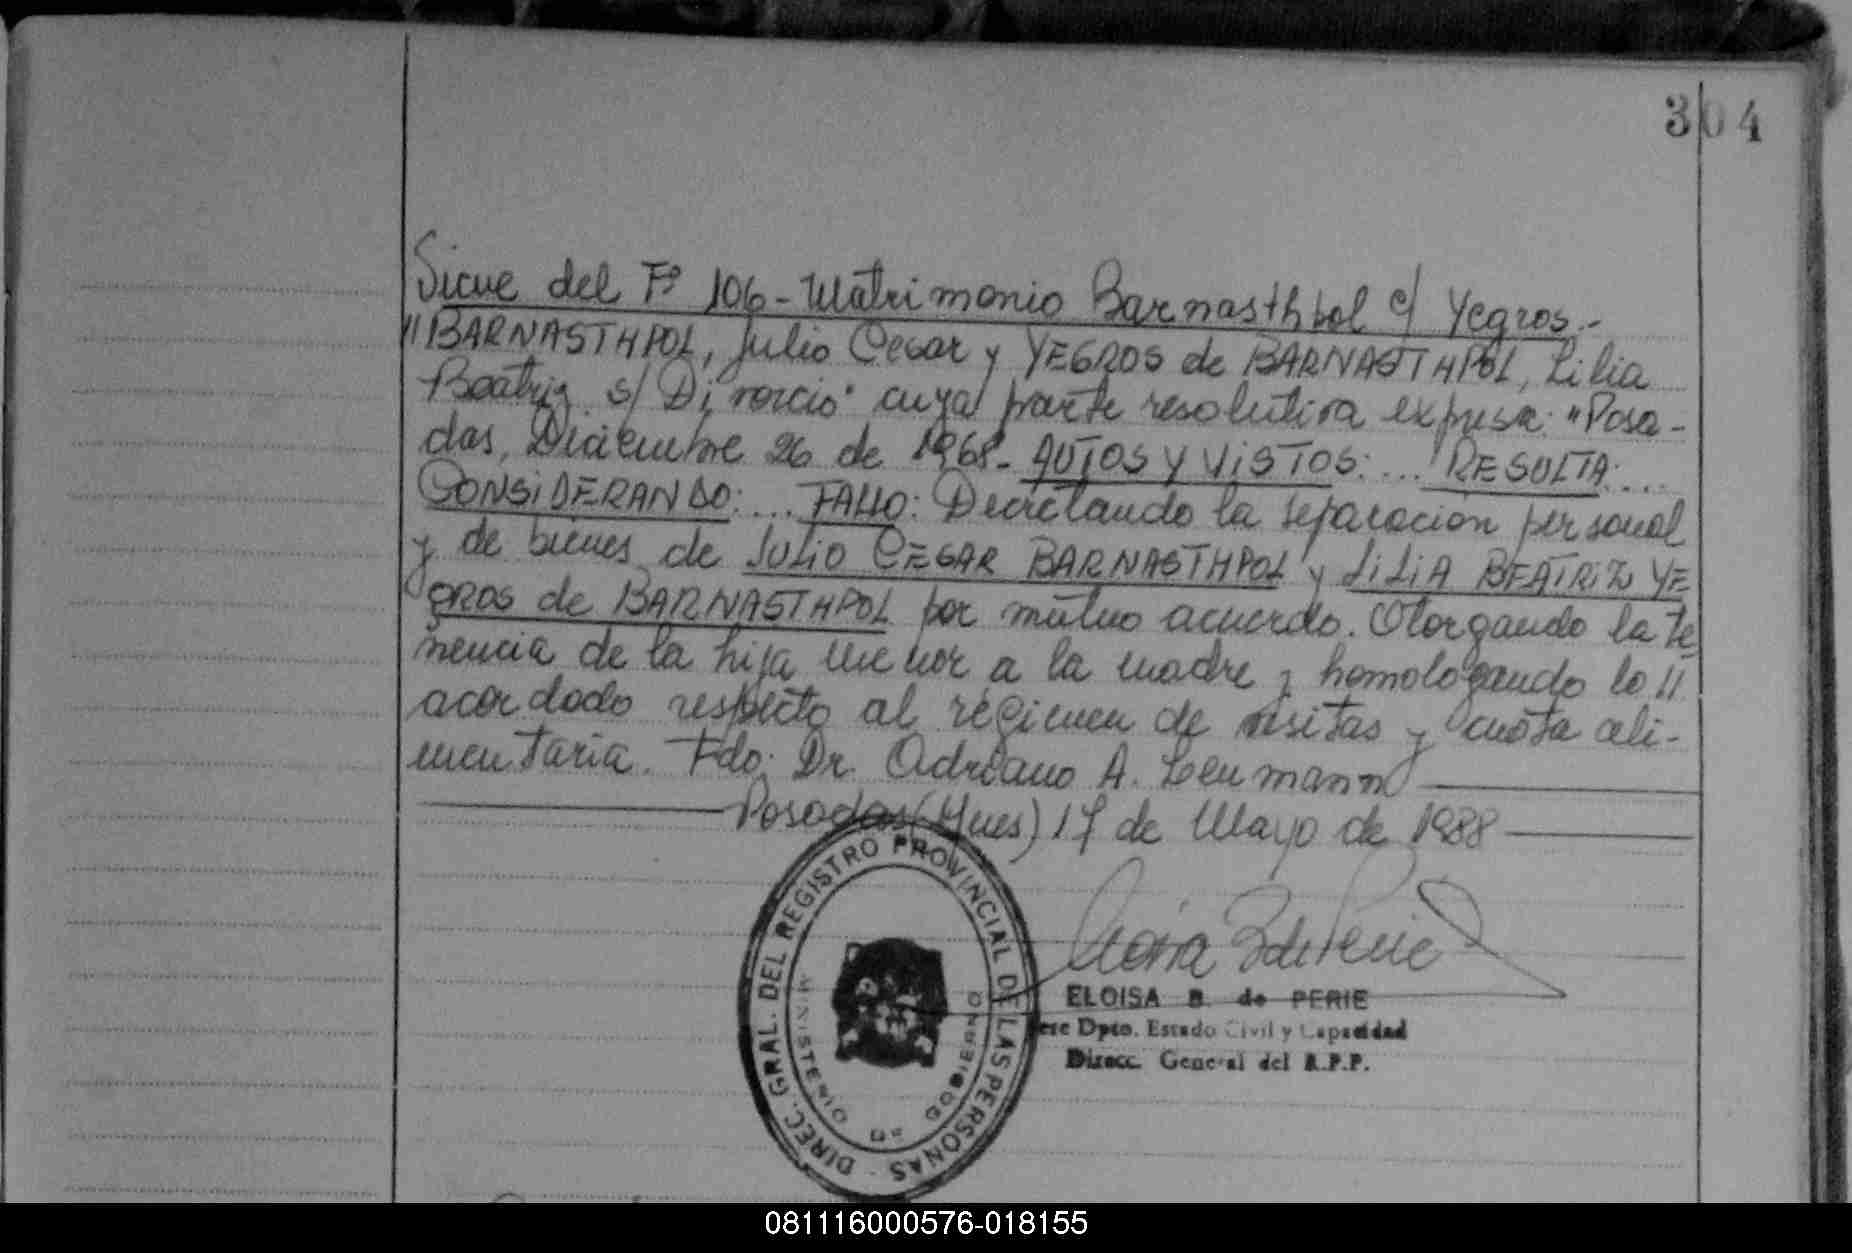 304
Sigue del Fº 106 - Matrimonio Barnasthpol c/ Yegros.-
//BARNASTHPOL, Julio Cesar y YEGROS de BARNASTHPOL, Lilia
Beatriz s/ Divorcio" cuya parte resolutiva expresa: "Posa-
das, Diciembre 26 de 1968- AUTOS Y VISTOS: ... RESULTA: ....
CONSIDERANDO: ... FALLO: Decretando la separacion personal
y de bienes de JULIO CESAR BARNASTHPOL y LILIA BEATRIZ YE
GROS de BARNASTHPOL por mutuo acuerdo. Otorgando la te
nencia de la hija menor a la madre y homologando lo //
acordado respecto al régimen de visitas y cuota ali-
mentaria. Fdo: Dr. Adriano A.
Posadas (Mnes) 17 de Mayo de 1988
DIREC. GRAL. DEL REGISTRO PROVINCIAL DE LAS PERSONAS -
MINISTERIO DE GOBIERNO
ELOISA B. de PERIE
Dpto. Estado Civil y Capacidad
Direcc. General del R.P.P.
081116000576-018155